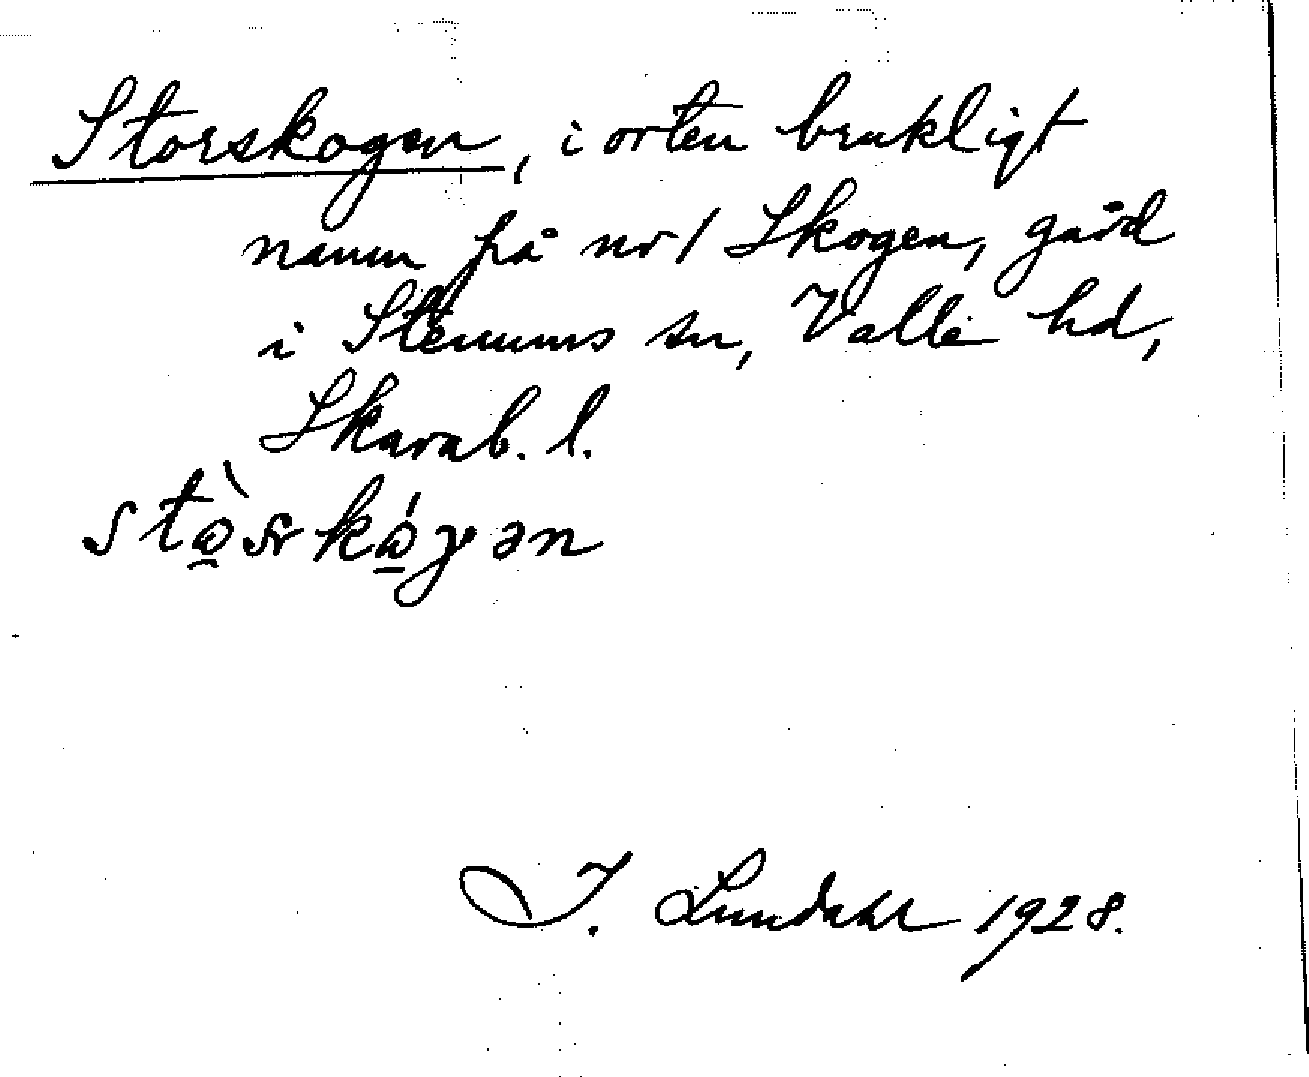 Storskogen, i orten brukligt
namn på nr 1 Skogen, gård
i Stenums sn, Valle hd,
Skarab. l.
I. Lundahl 1928.